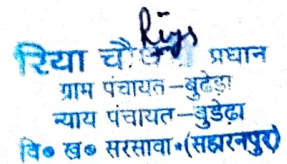 रिया चौ प्रधान
ग्राम पंचायत-बुढेड़ा
न्याय पंचायत-बुडेढ़ा
वि० ख० सरसावा (सहारनपुर)